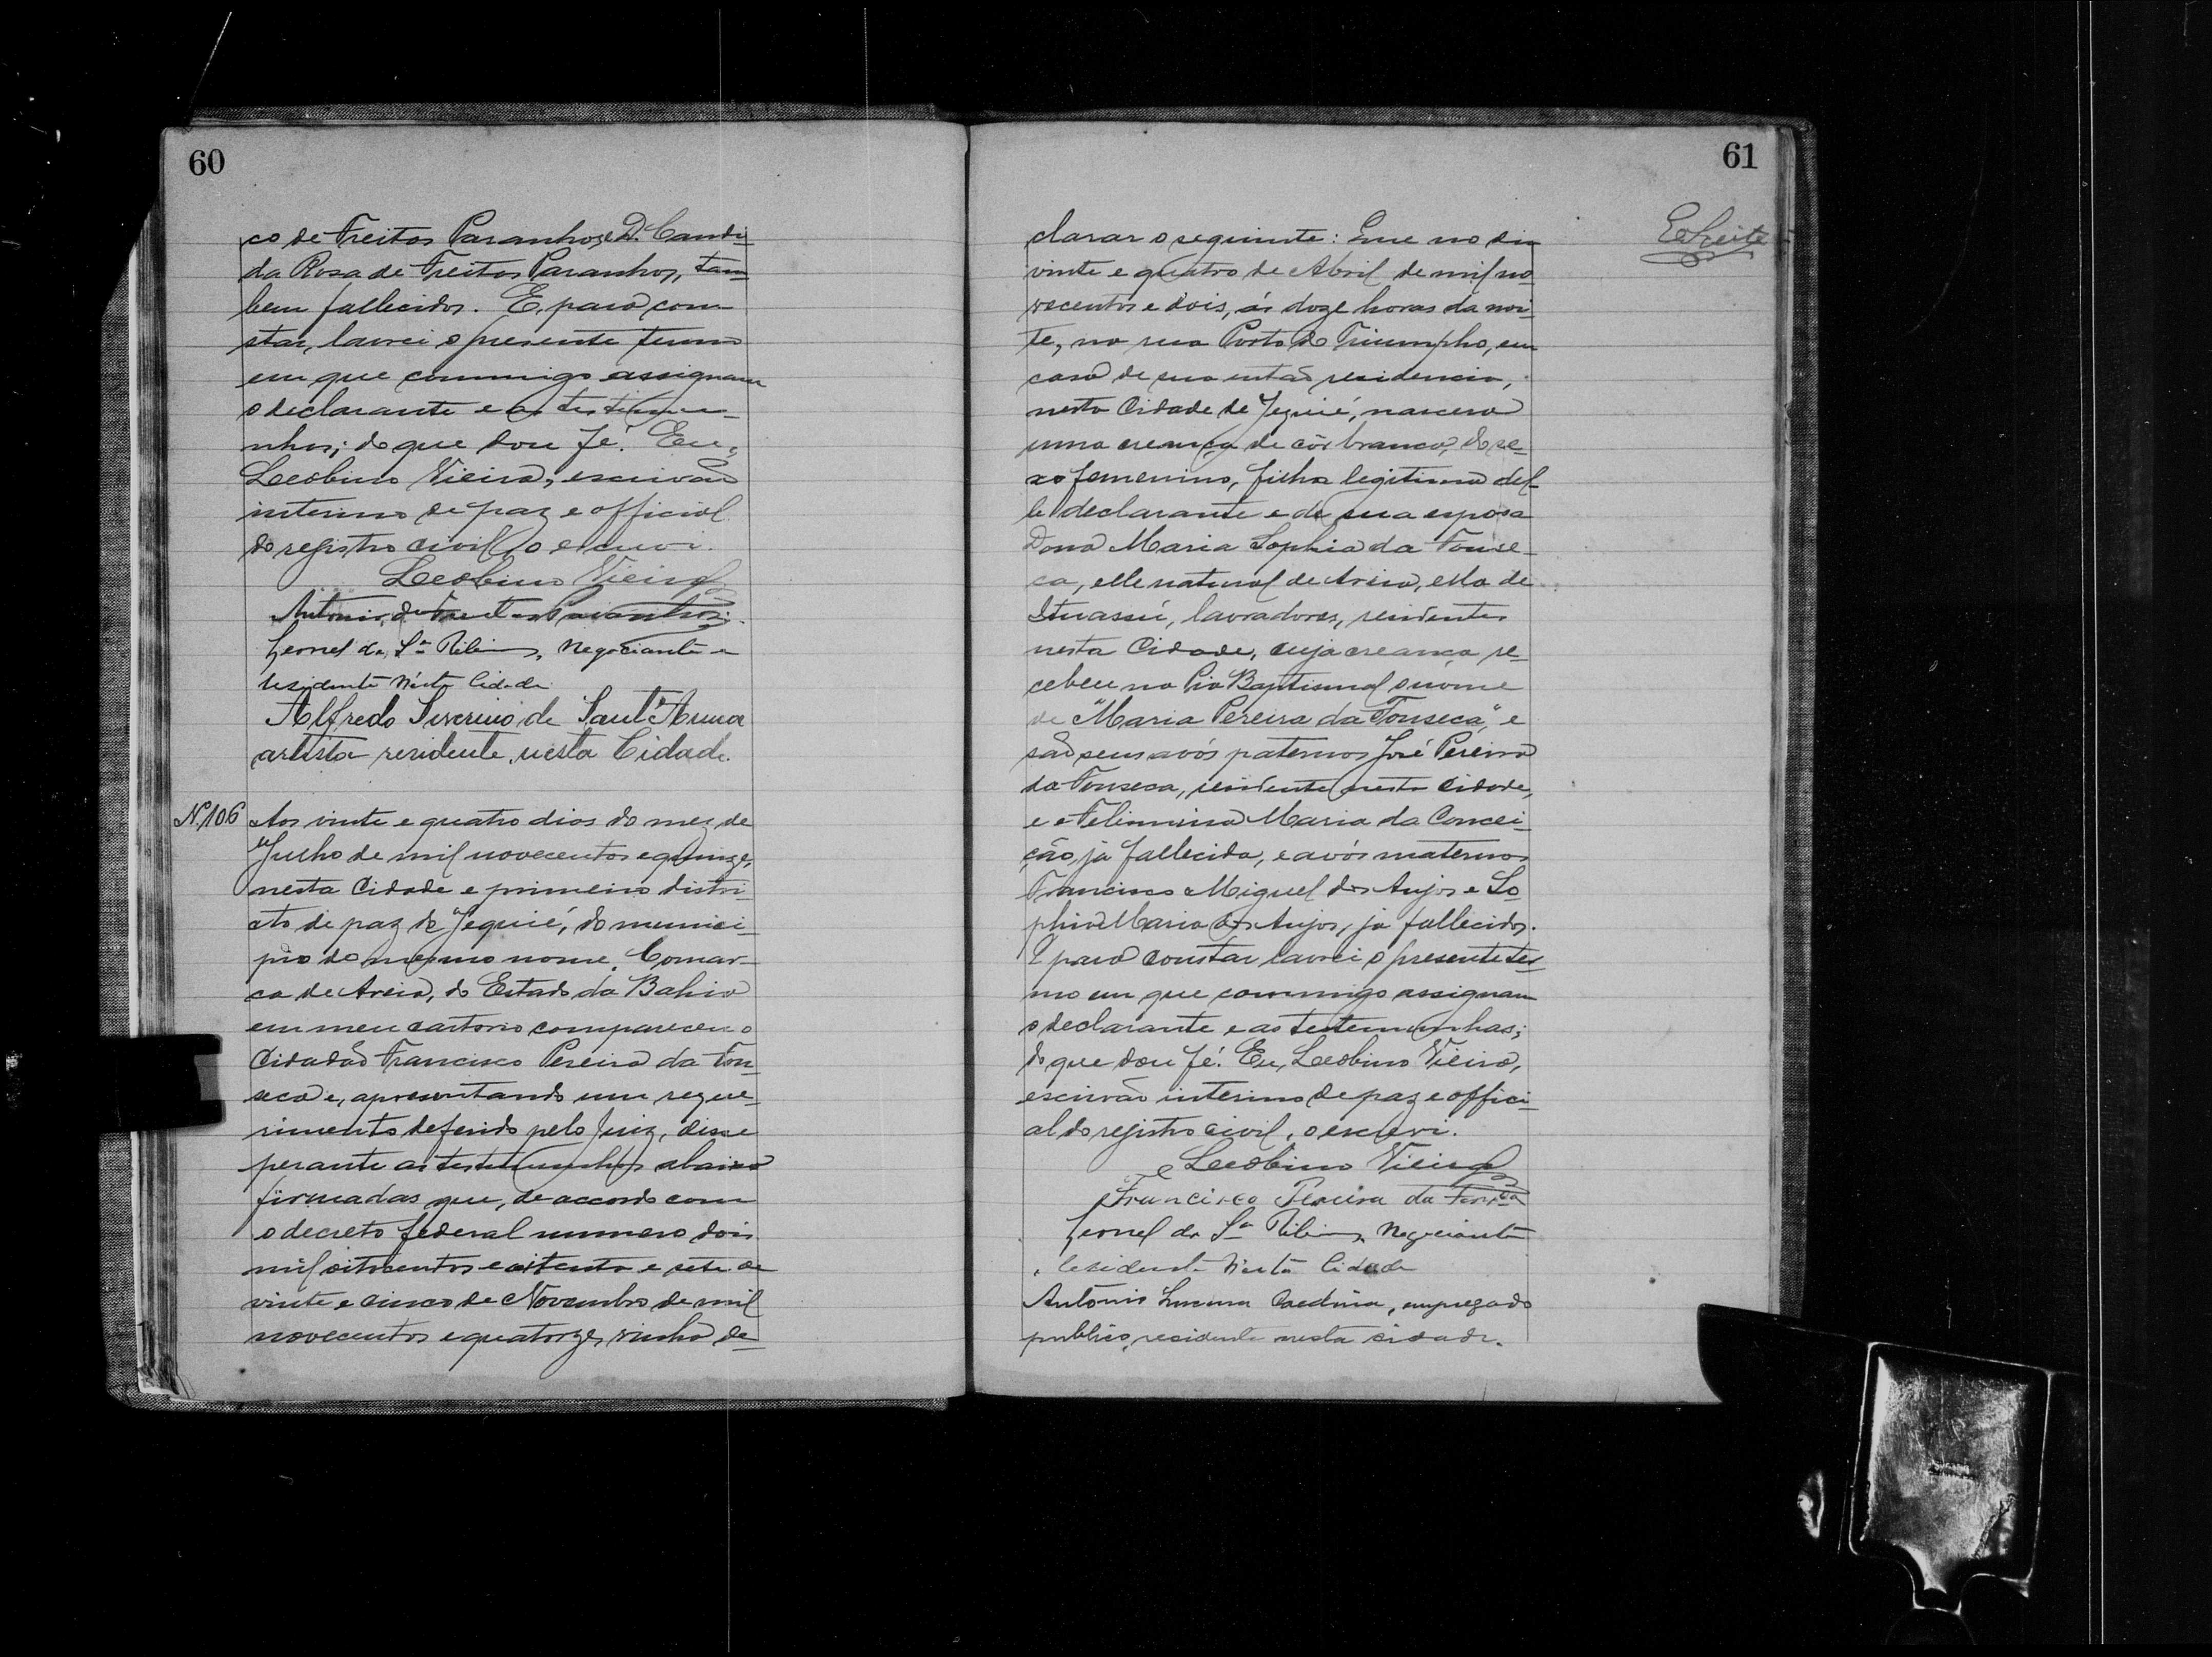 60
co de Freitas Paranhos e D. Candi-
da Rosa de Freitas Paranhos, tam-
bem fallecidos. E, para con-
star, lavrei o presente termo
em que commigo assignam
o declarante e as testemu-
nhas; do que dou fé. Eu,
Leobino Vieira, escrivão
interino de paz e official
do registro civil, o escrevi.
Leobino Vieira
Antonio de Freitas Paranhos
Leonel de Sª Ribeiro, Negociante e
residente nésta Cidade
Alfredo Severino de Sant'Anna
artista residente nesta Cidade.
N. 106 Aos vinte e quatro dias do mez de
Julho de mil novecentos e quinze,
nesta Cidade e primeiro distri-
cto de paz de Jequié, do munici-
pio do mesmo nome, Comar-
ca de Areia, do Estado da Bahia
em meu cartorio compareceu o
Cidadão Francisco Pereira da Fon-
seca e, apresentando um reque-
rimento deferido pelo Juiz, disse
perante as testemunhas abaixo
firmadas que, de accordo com
o decreto federal numero dois
mil oitocentos e oitenta e sete de
vinte e cinco de Novembro de mil
novecentos e quatorze, vinha de-
61
clarar o seguinte: Que no dia
vinte e quatro de Abril de mil no-
vecentos e dois, ás doze horas da noi-
te, na rua Porto do Triumpho, em
casa de sua então residencia,
nesta Cidade de Jequié, nascera
uma creança de côr branca, do se-
xo femenino, filha legitima del-
le declarante e de sua esposa
Dona Maria Sophia da Fonse-
ca, elle natural de Areia, ella de
Ituassú, lavradores, residentes
nesta Cidade, cuja creança re-
cebeu na Pia Baptismal o nome
de "Maria Pereira da Fonseca," e
são seus avós paternos José Pereira
da Fonseca, residente nesta Cidade,
e Maria da Concei-
ção, já fallecida, e avós maternos
Francisco Miguel dos Anjos e So-
phia Maria dos Anjos, já fallecidos.
E para constar lavrei o presente ter-
mo em que commigo assignam
o declarante e as testemunhas;
do que dou fé. Eu, Leobino Vieira,
escrivão interino de paz e offici-
al do registro civil, o escrevi.
Leobino Vieira
Francisco Pereira da Fonseca
Leonel de Sª Ribeiro, Negociante
residente nésta Cidade
Antonio, empregado
publico, residente nesta cidade.